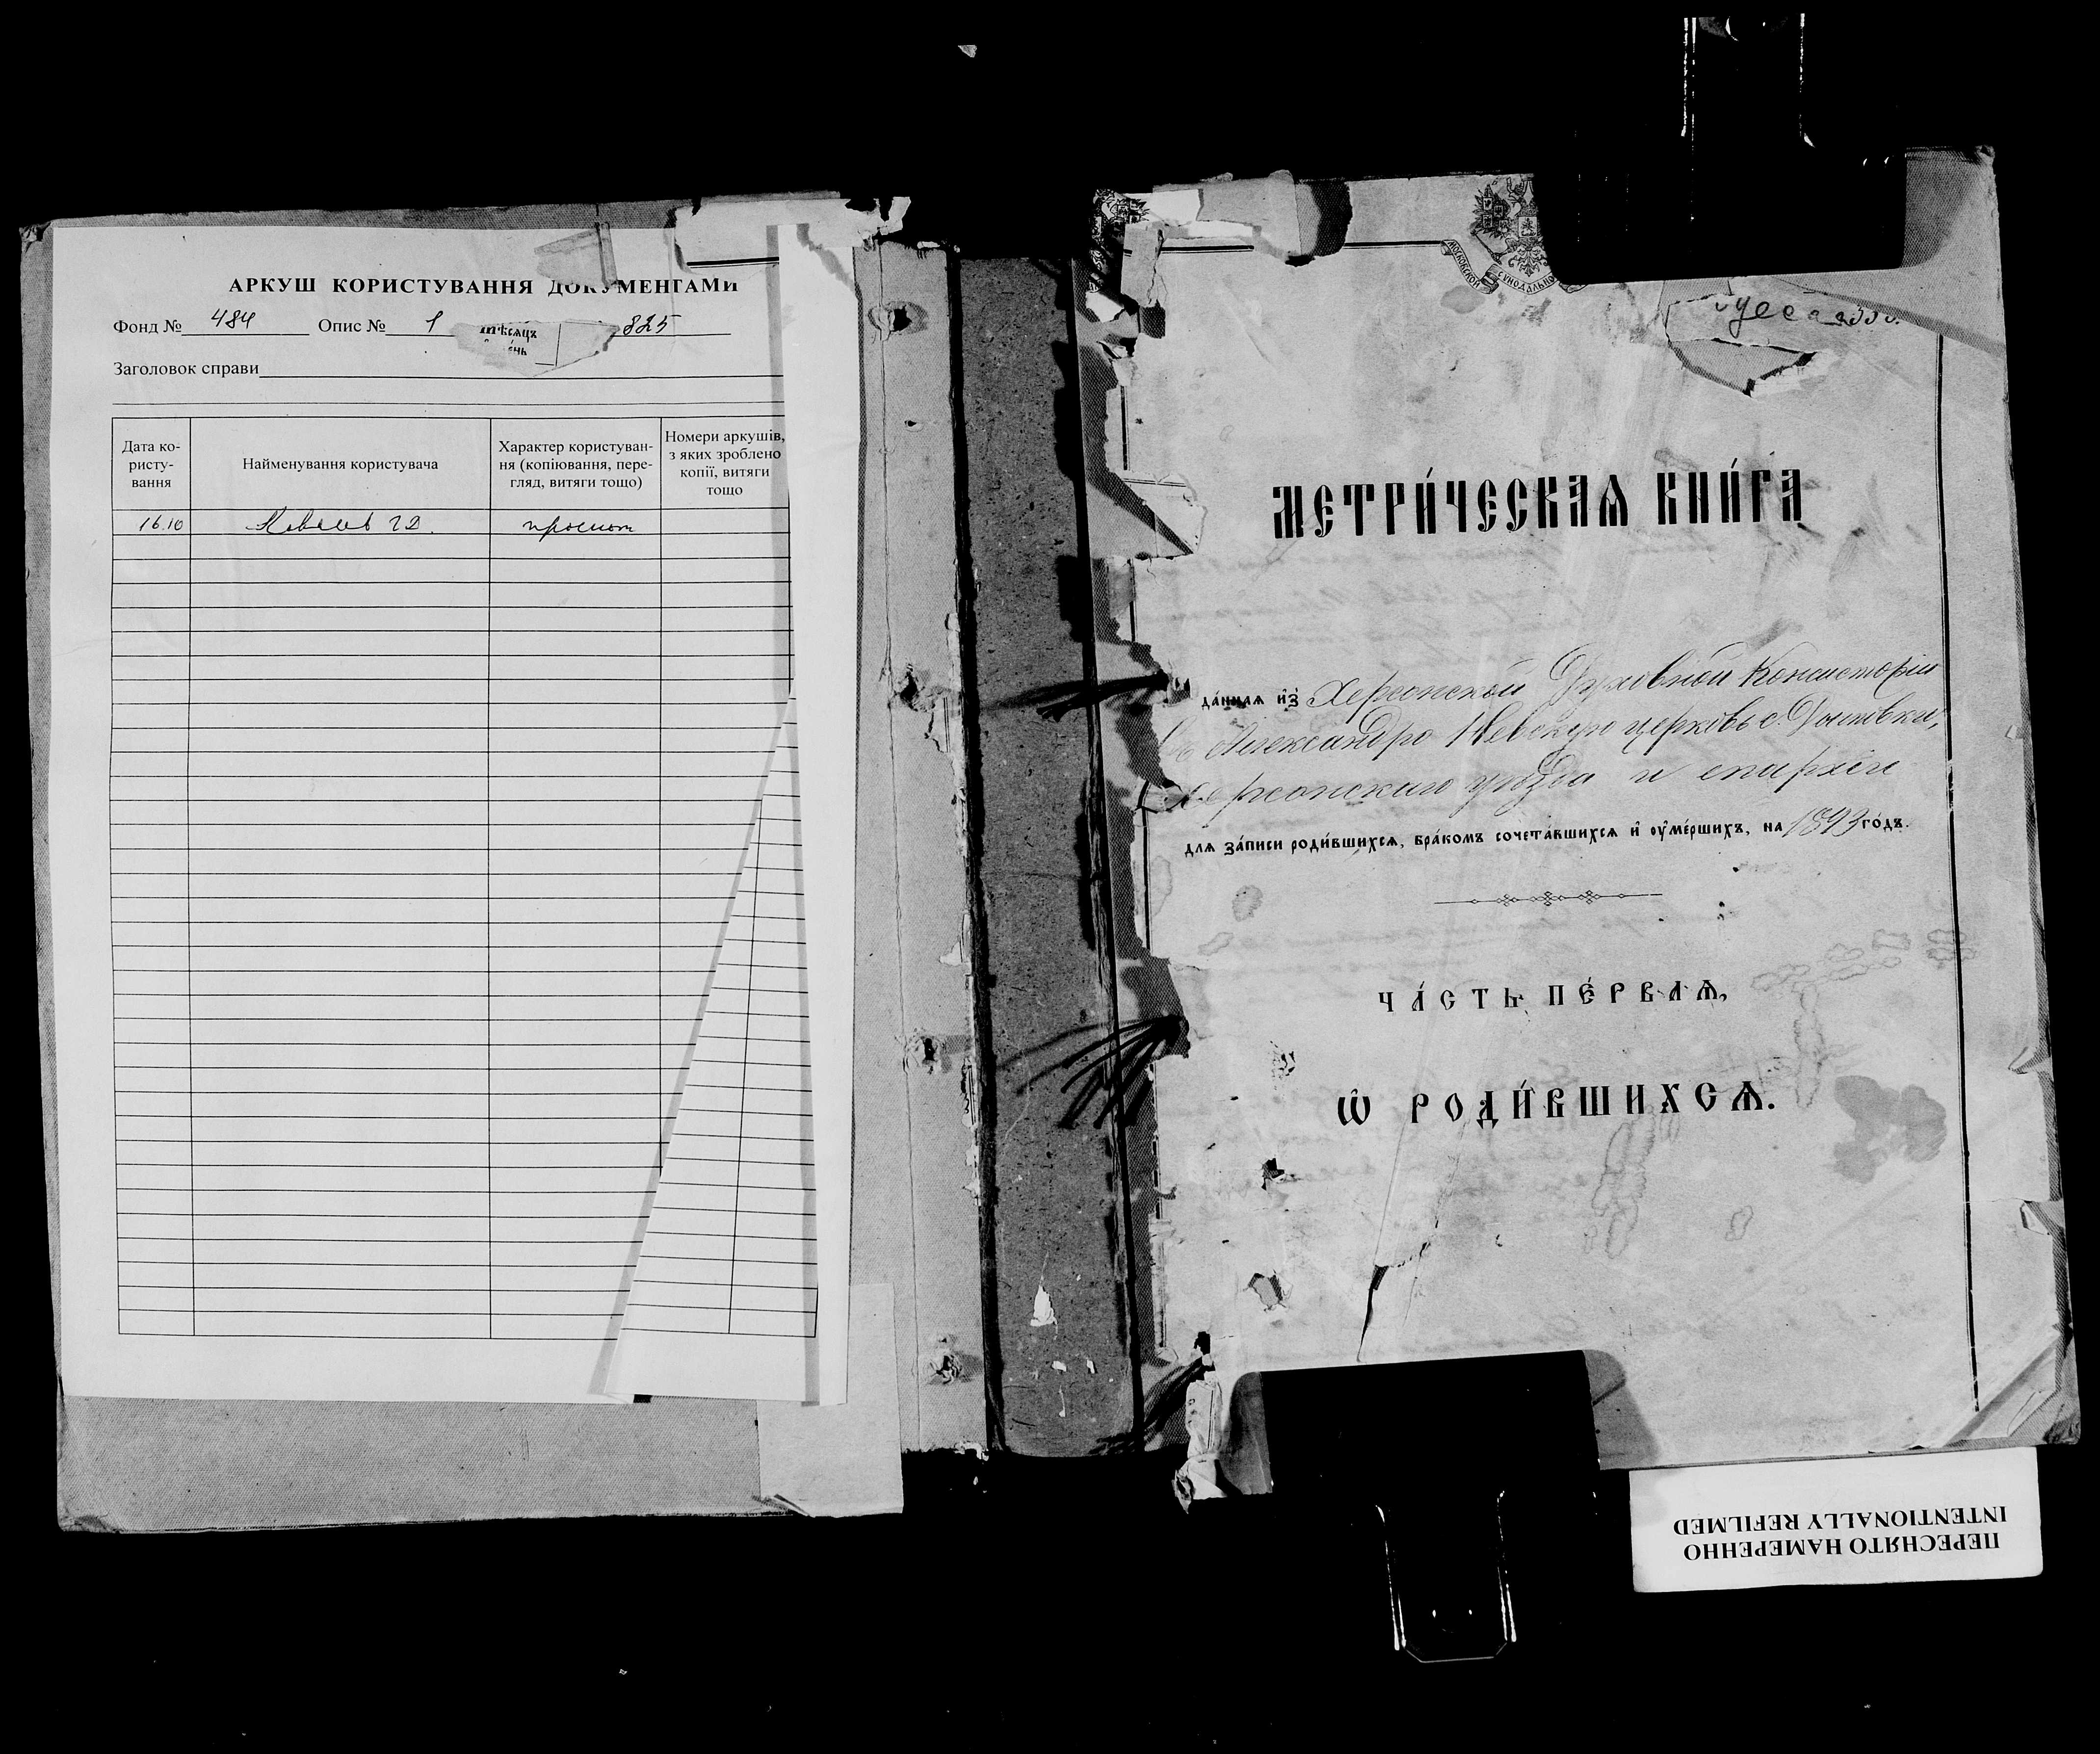 АРКУШ КОРИСТУВАННЯ ДОКУМЕНТАМИ
Фонд № 484 Опис № 1 825
мѣсяцъ
Заголовок справи
Дата ко-
ристу-
вання
Найменування користувача
Характер користуван-
ня (копіювання, пере-
гляд, витяги тощо)
Номери аркушів,
з яких зроблено
копії, витяги
тощо
16.10
МОСКОВСКОЙ СѴНОДАЛЬНО
МЕТРИ́ЧЕСКАѦ КНИ́ГА
да́ннаѧ и҆з̾ Херсонской Духовной Консисторіи
въ Александро Невскую церковь с.
Херсонскаго уѣзда и епархіи
длѧ за́писи роди́вшихсѧ, бра́комъ сочета́вшихсѧ и҆ ѹ҆ме́ршихъ, на 1893 го́дъ.
ЧА́СТЬ ПЕ́РВАѦ,
Ѡ҆ РОДИ́ВШИХСѦ.
ПЕРЕСНЯТО НАМЕРЕННО
INTENTIONALLY REFILMED